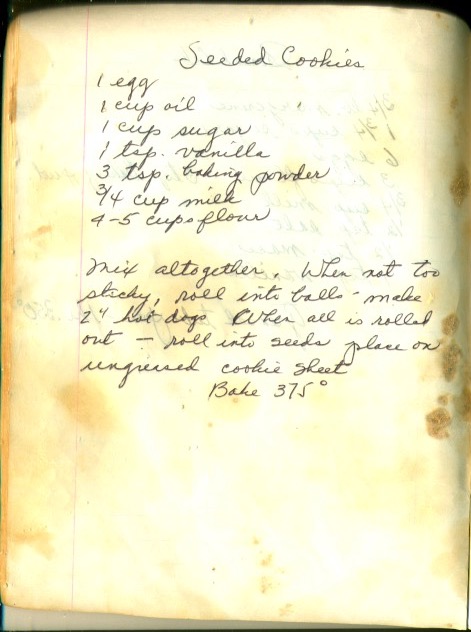 Seeded Cookies
1 egg
1 cup oil
1 cup sugar
1 tsp. vanilla
3 tsp. baking powder
3/4 cup milk
4-5 cups flour
Mix altogether. When not too
sticky, roll into balls - make
2" hot dogs When all is rolled
out - roll into seeds place on
ungreased cookie sheet
Bake 375°